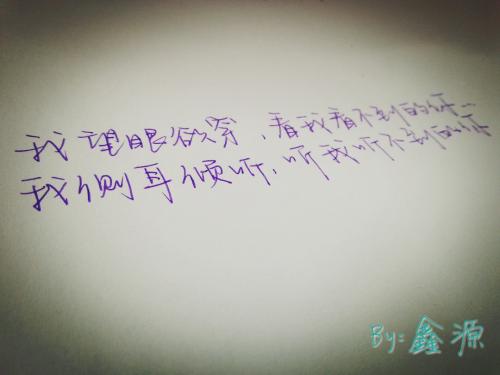 我望眼欲穿，看我看不到的你...
我侧耳倾听，听我听不到的你
By:鑫源